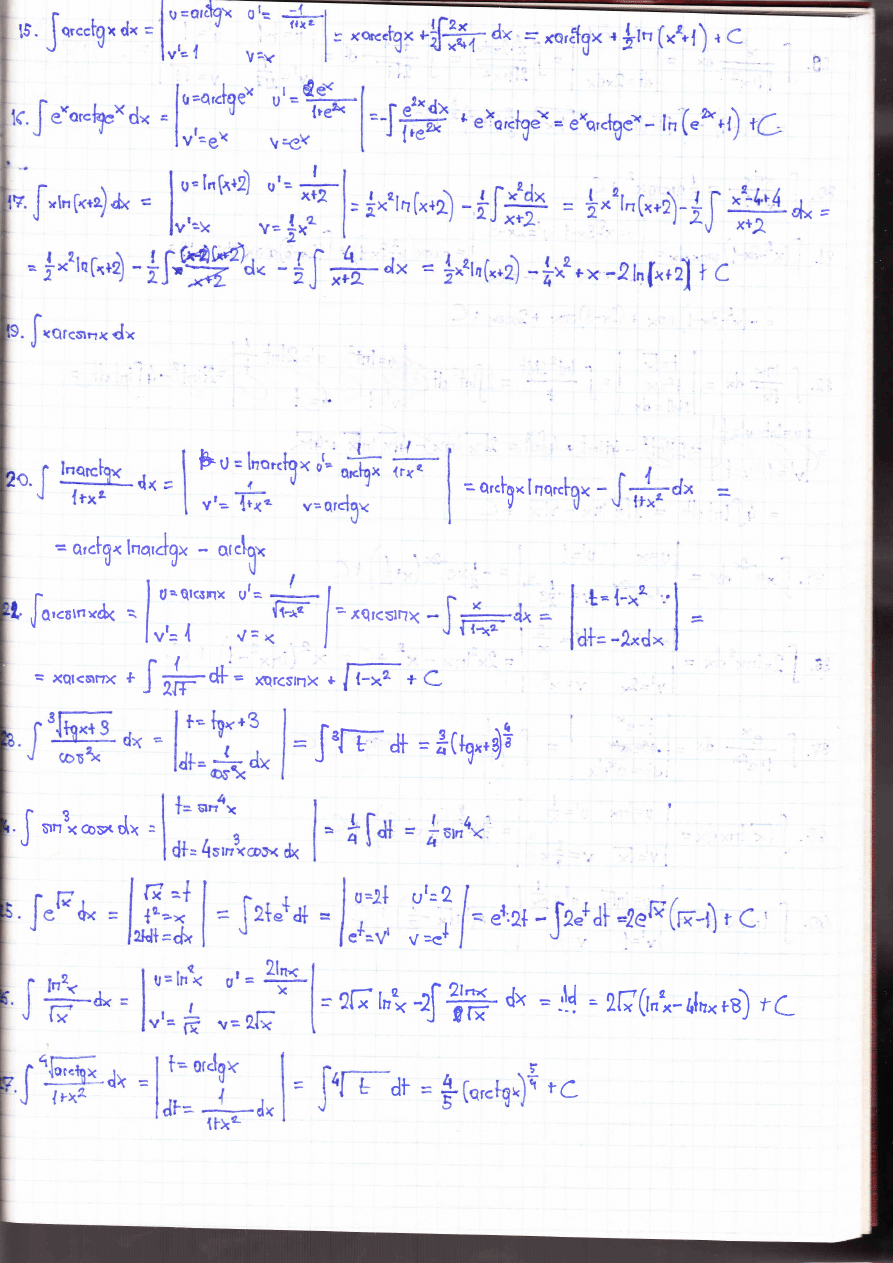 15. ∫ arcctgx dx = | u=arcctgx u'= -1/(1+x²) v'=1 v=x | = xarcctgx + 1/2 ∫ 2x/(x²+1) dx = xarcctgx + 1/2 ln(x²+1) + C
16. ∫ eˣarctgeˣ dx = | u=arctgeˣ u'= eˣ/(1+e²ˣ) v'=eˣ v=eˣ | = -∫ e²ˣdx/(1+e²ˣ) + eˣarctgeˣ = eˣarctgeˣ - ln(e²ˣ+1) + C
17. ∫ xln(x+2) dx = | u=ln(x+2) u'= 1/(x+2) v'=x v= 1/2 x² | = 1/2 x²ln(x+2) - 1/2 ∫ x²dx/(x+2) = 1/2 x²ln(x+2) - 1/2 ∫ (x²-4+4)/(x+2) dx =
= 1/2 x²ln(x+2) - 1/2 ∫ (x-2)(x+2)/(x+2) dx - 1/2 ∫ 4/(x+2) dx = 1/2 x²ln(x+2) - 1/4 x² + x - 2ln|x+2| + C
19. ∫ xarcsinx dx
20. ∫ lnarctgx/(1+x²) dx = | u=lnarctgx u'= 1/arctgx 1/(1+x²) v'= 1/(1+x²) v=arctgx | = arctgxlnarctgx - ∫ 1/(1+x²) dx =
= arctgxlnarctgx - arctgx
22. ∫ arcsinxdx = | u=arcsinx u'= 1/√(1-x²) v'=1 v=x | = xarcsinx - ∫ x/√(1-x²) dx = | t=1-x² dt=-2xdx | =
= xarcsinx + ∫ 1/(2√t) dt = xarcsinx + √(1-x²) + C
3. ∫ ³√(tgx+3)/cos²x dx = | t=tgx+3 dt= 1/cos²x dx | = ∫ ³√t dt = 3/4 (tgx+3)^(4/3)
4. ∫ sin³xcosx dx = | t=sin⁴x dt=4sin³xcosx dx | = 1/4 ∫ dt = 1/4 sin⁴x
5. ∫ e^√x dx = | √x=t t²=x 2tdt=dx | = ∫ 2teᵗdt = | u=2t u'=2 eᵗ=v' v=eᵗ | = eᵗ·2t - ∫ 2eᵗdt = 2e^√x (√x-1) + C
6. ∫ ln²x/√x dx = | u=ln²x u'= 2lnx/x v'= 1/√x v=2√x | = 2√x ln²x - 2∫ 2lnx/√x dx = ... = 2√x(ln²x-4lnx+8) + C
7. ∫ ⁴√arctgx/(1+x²) dx = | t=arctgx dt= 1/(1+x²) dx | = ∫ ⁴√t dt = 4/5 (arctgx)^(5/4) + C